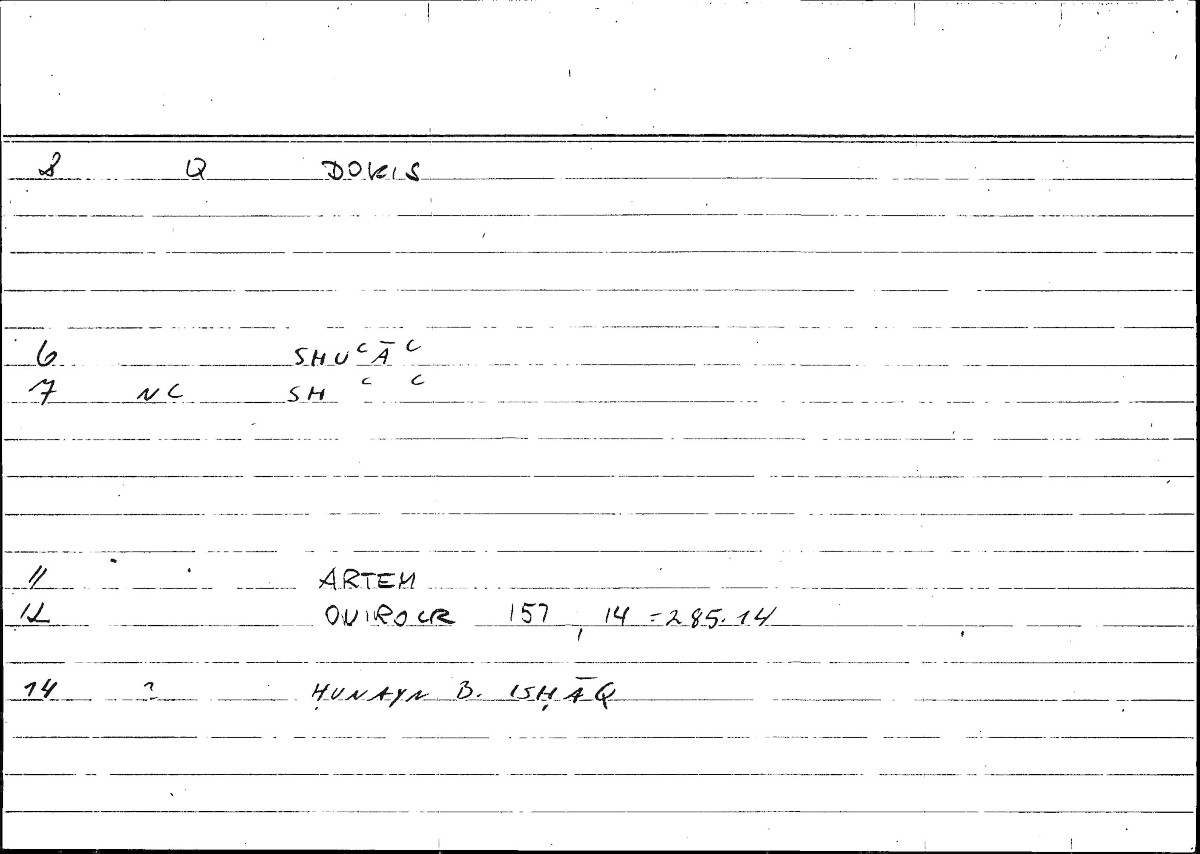 8 Q DOKIS
6 SHUʿĀʿ
7 NC SH ʿ ʿ
11 ARTEM
12 157, 14 = 285.14
14 ? ḤUNAYN B. ISḤĀQ